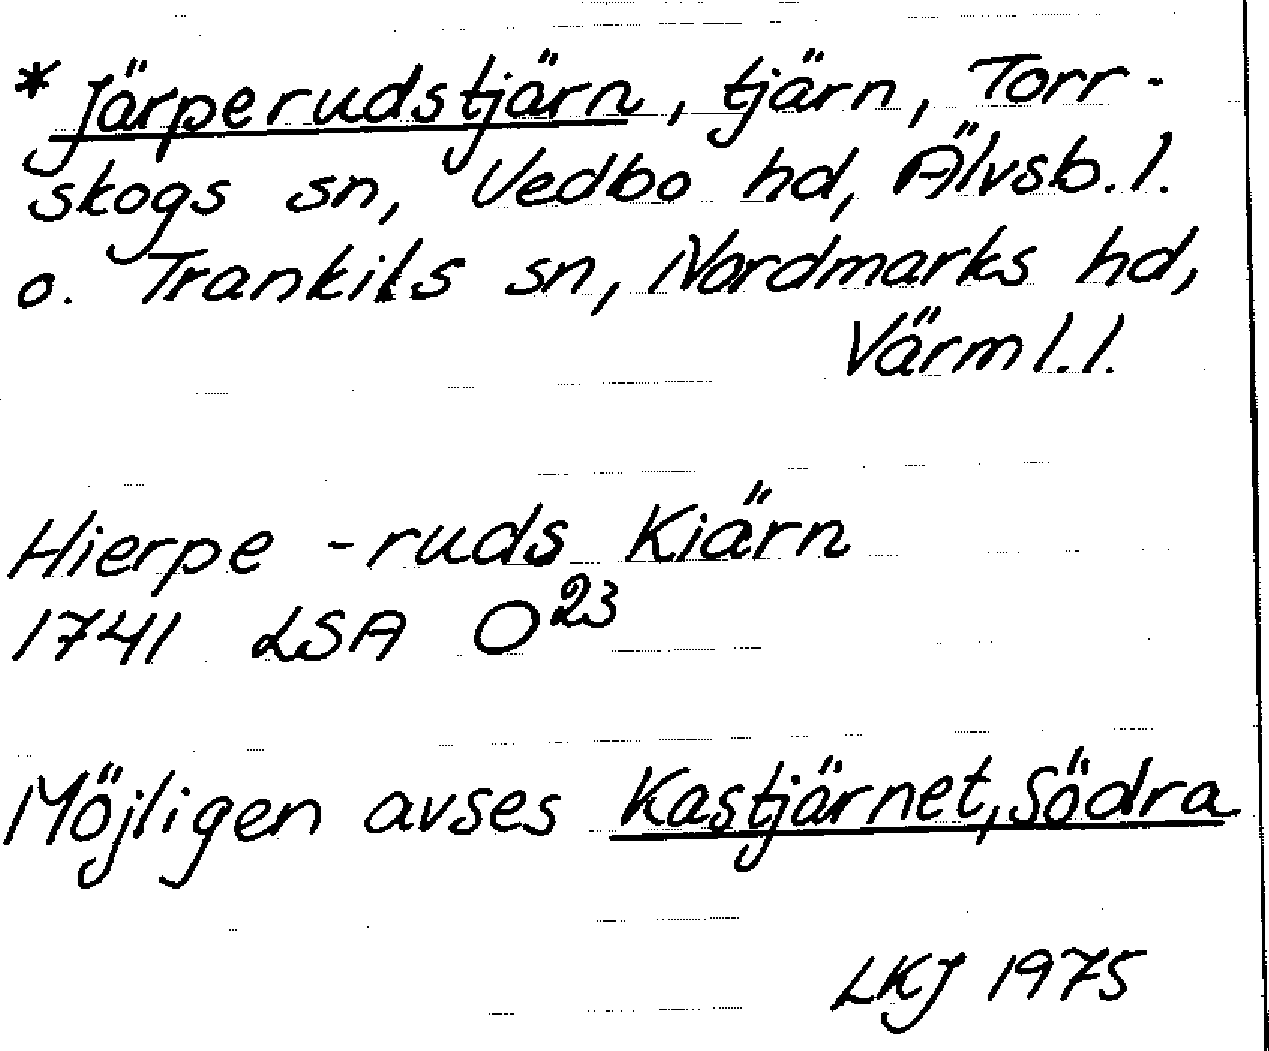 * Järperudstjärn, tjärn, Torr-
skogs sn, Vedbo hd, Älvsb. l.
o. Trankils sn, Nordmarks hd,
Värml. l.
Hierpe-ruds Kiärn
1741 LSA O 23
Möjligen avses Kastjärnet, Södra
LKJ 1975